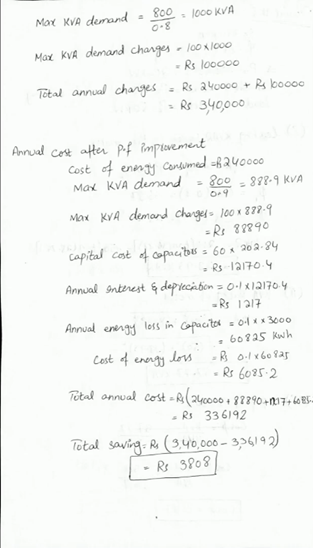 Max KVA demand = 800/0.8 = 1000 KVA
Max KVA demand charges = 100 x 1000
= Rs 100000
Total annual charges = Rs 240000 + Rs 100000
= Rs 3,40,000
Annual Cost after p.f improvement
Cost of energy Consumed = R 240000
Max KVA demand = 800/0.9 = 888.9 KVA
Max KVA demand charges = 100 x 888.9
= Rs 88890
Capital cost of capacitors = 60 x 202.84
= Rs 12170.4
Annual interest & depreciation = 0.1 x 12170.4
= Rs 1217
Annual energy loss in Capacitor = 0.1 x x 3000
= 60825 Kwh
Cost of energy loss = Rs 0.1 x 60825
= Rs 6085.2
Total annual cost = Rs (240000 + 88890 + 1217 + 6085.
= Rs 336192
Total saving = Rs (3,40,000 - 3,36,192)
= Rs 3808